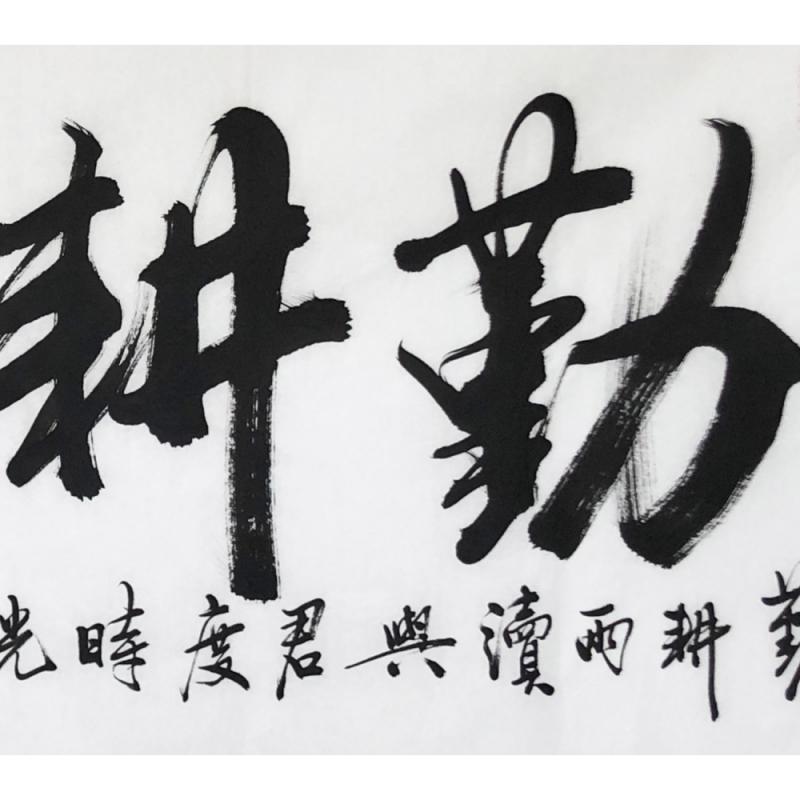 勤耕
勤耕雨瀆與君度時光